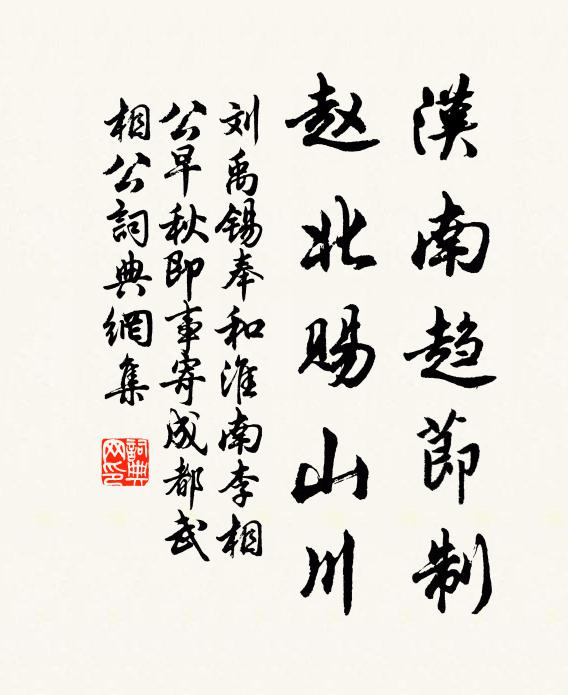 漢南趋節制
赵北賜山川
刘禹锡奉和淮南李相
公早秋即事寄成都武
相公詞典網集
詞典网印